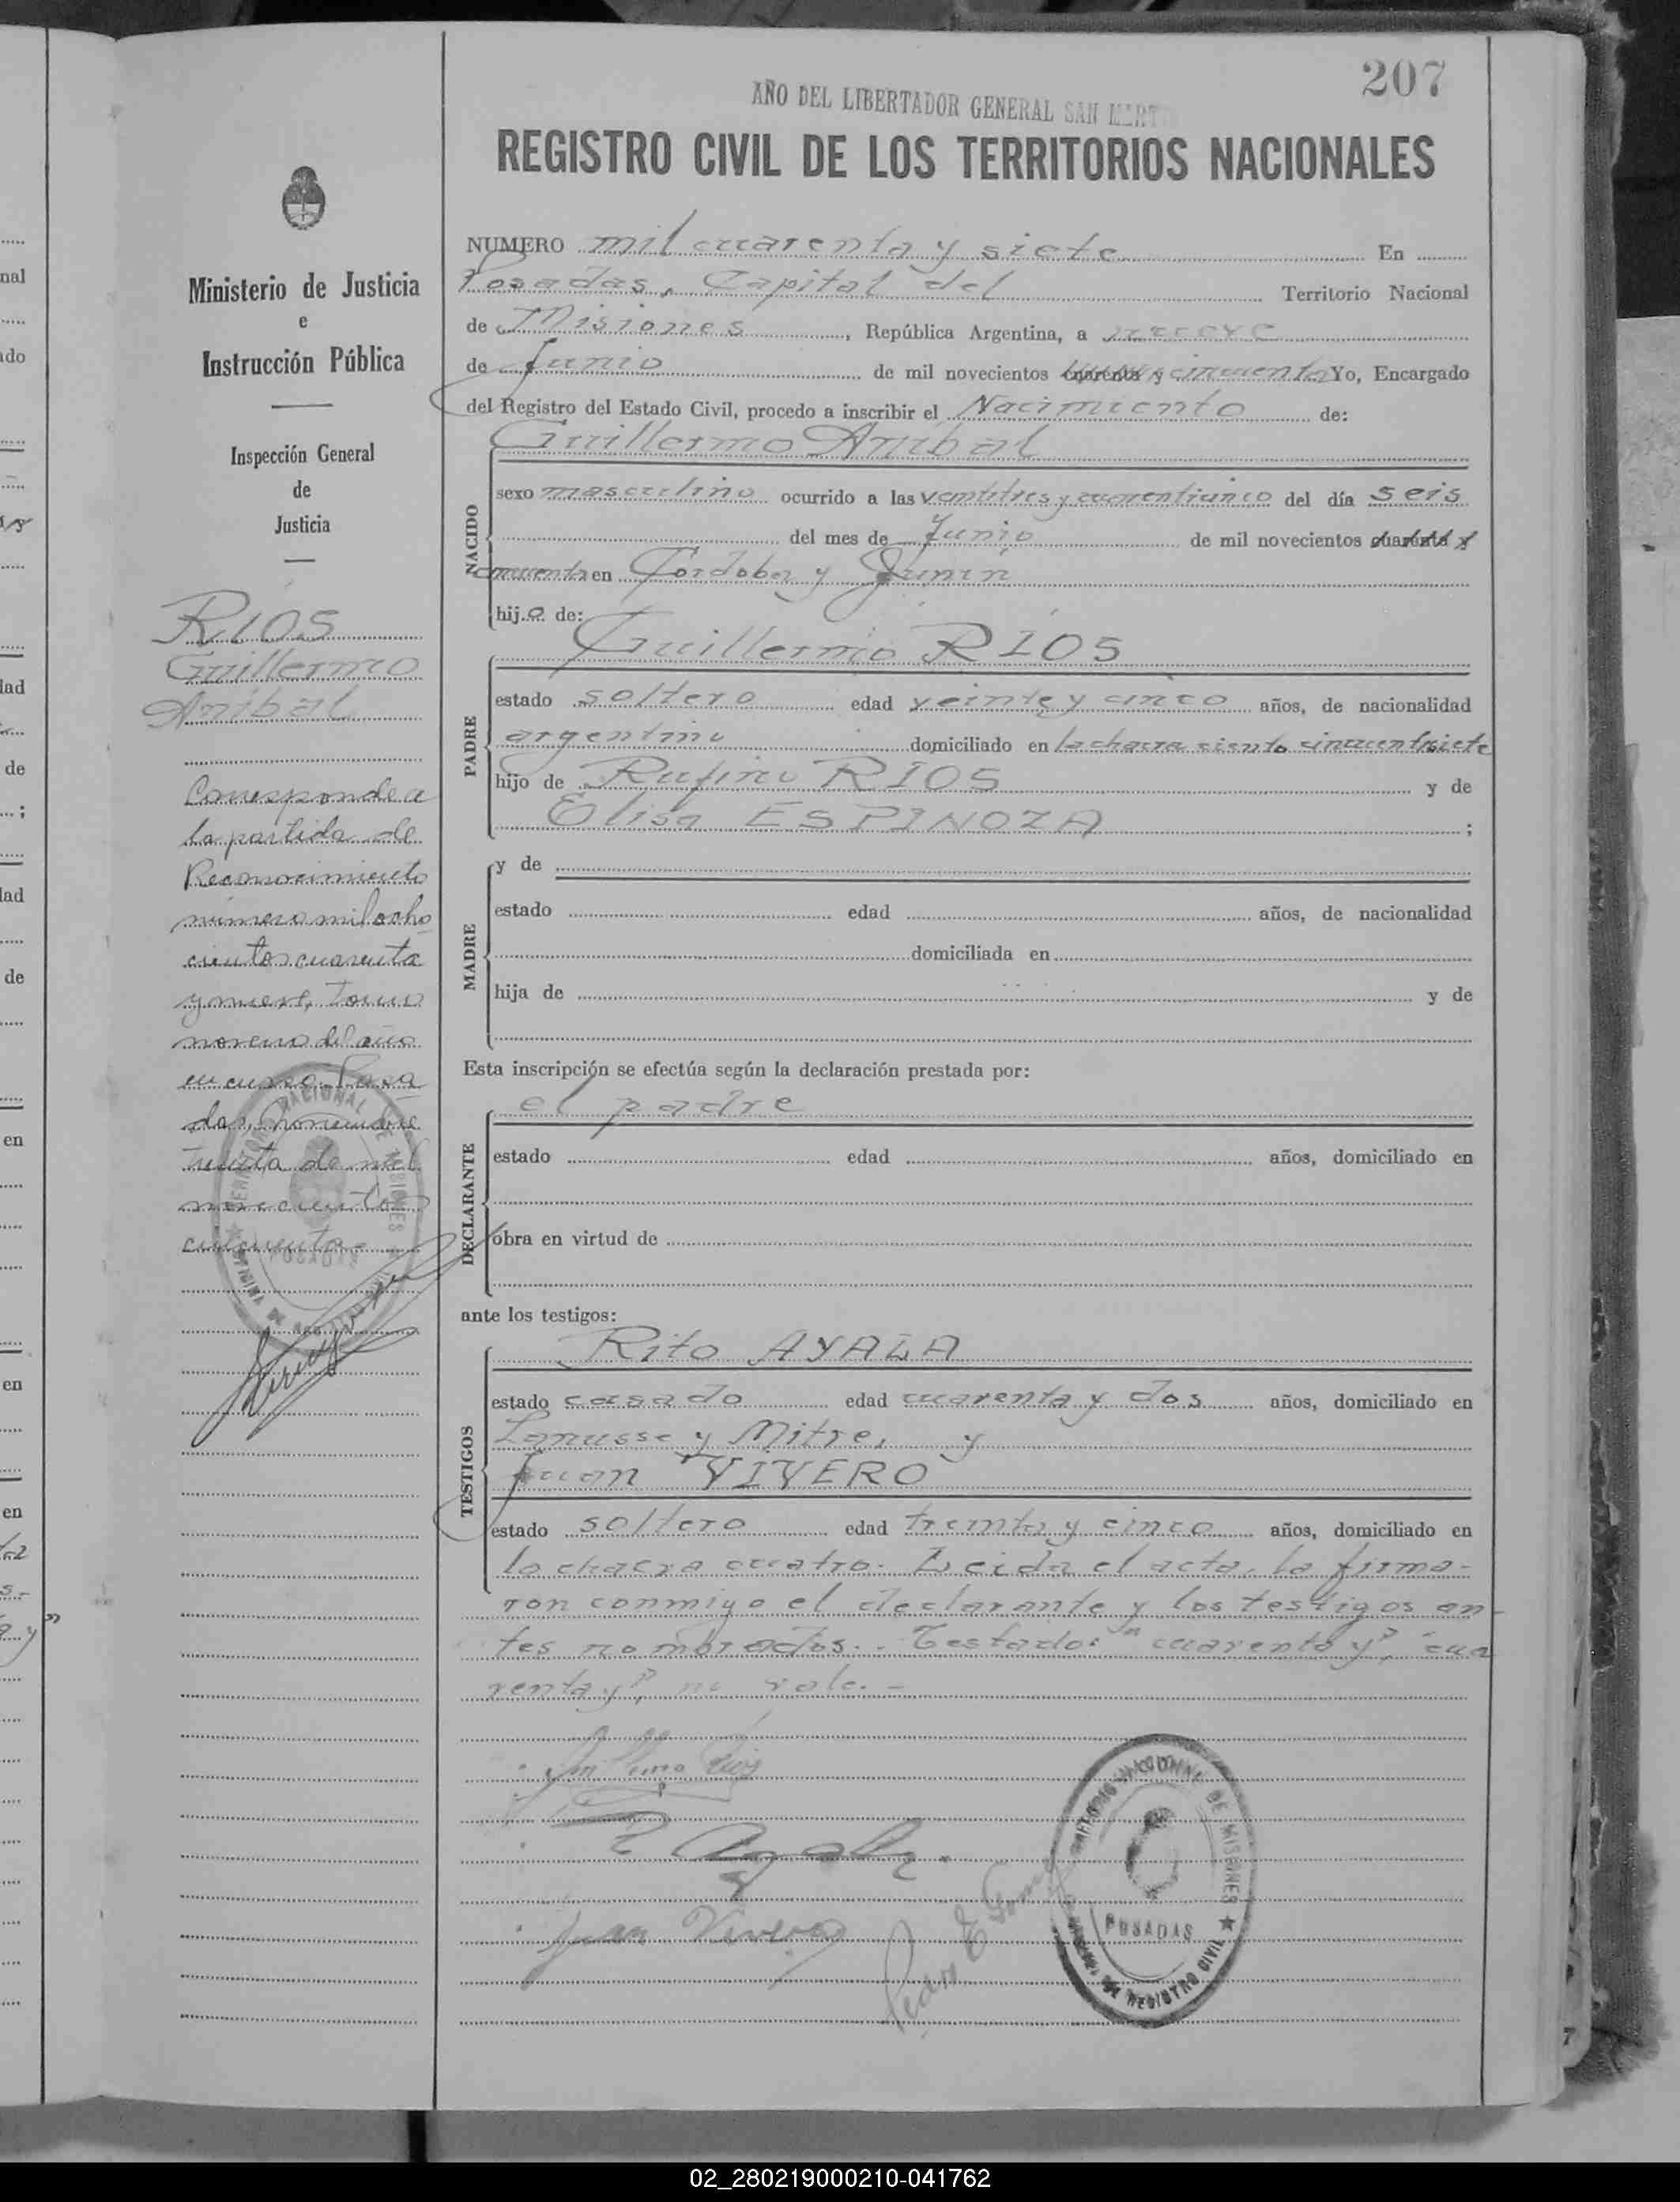 207
AÑO DEL LIBERTADOR GENERAL SAN MART
REGISTRO CIVIL DE LOS TERRITORIOS NACIONALES
Ministerio de Justicia
e
Instrucción Pública
Inspección General
de
Justicia
RIOS
Guillermo
Anibal
Corresponde a
la partida de
Reconocimiento
número mil ocho
cientos cuarenta
y nueve, tomo
noveno del año
en curso. Posa
das, Noviembre
treinta de mil
novecientos
cincuenta.-
NUMERO mil cuarenta y siete En
Posadas, Capital del Territorio Nacional
de Misiones, República Argentina, a nueve
de Junio de mil novecientos cuarenta y cincuenta Yo, Encargado
del Registro del Estado Civil, procedo a inscribir el Nacimiento de:
Guillermo Anibal
NACIDO
sexo masculino ocurrido a las veintitres y cuarenticinco del día seis
del mes de Junio de mil novecientos cuarenta y
cincuenta en Córdoba y Junin
hijo de:
Guillermo RIOS
PADRE
estado soltero edad veinte y cinco años, de nacionalidad
argentino domiciliado en la chacra ciento cincuentisiete
hijo de Rufino RIOS y de
Elisa ESPINOZA ;
MADRE
y de
estado edad años, de nacionalidad
domiciliada en
hija de y de
Esta inscripción se efectúa según la declaración prestada por:
el padre
DECLARANTE
estado edad años, domiciliado en
obra en virtud de
ante los testigos:
Rito AYALA
TESTIGOS
estado casado edad cuarenta y dos años, domiciliado en
Lanusse y Mitre, y
Juan VIVERO
estado soltero edad treinta y cinco años, domiciliado en
la chacra cuatro. Leida el acta, la firma-
ron conmigo el declarante y los testigos an-
tes nombrados.. Testado: "cuarenta y", "cua
renta y", no vale.-
Guillermo Rios
R Ayala
Juan Vivero
Pedro E Gomez
TERRITORIO NACIONAL DE MISIONES
POSADAS
REGISTRO CIVIL
02_280219000210-041762